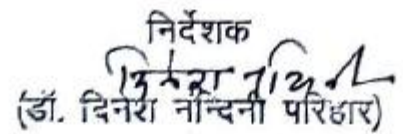 निर्देशक
(डॉ. दिनेश नन्दिनी परिहार)